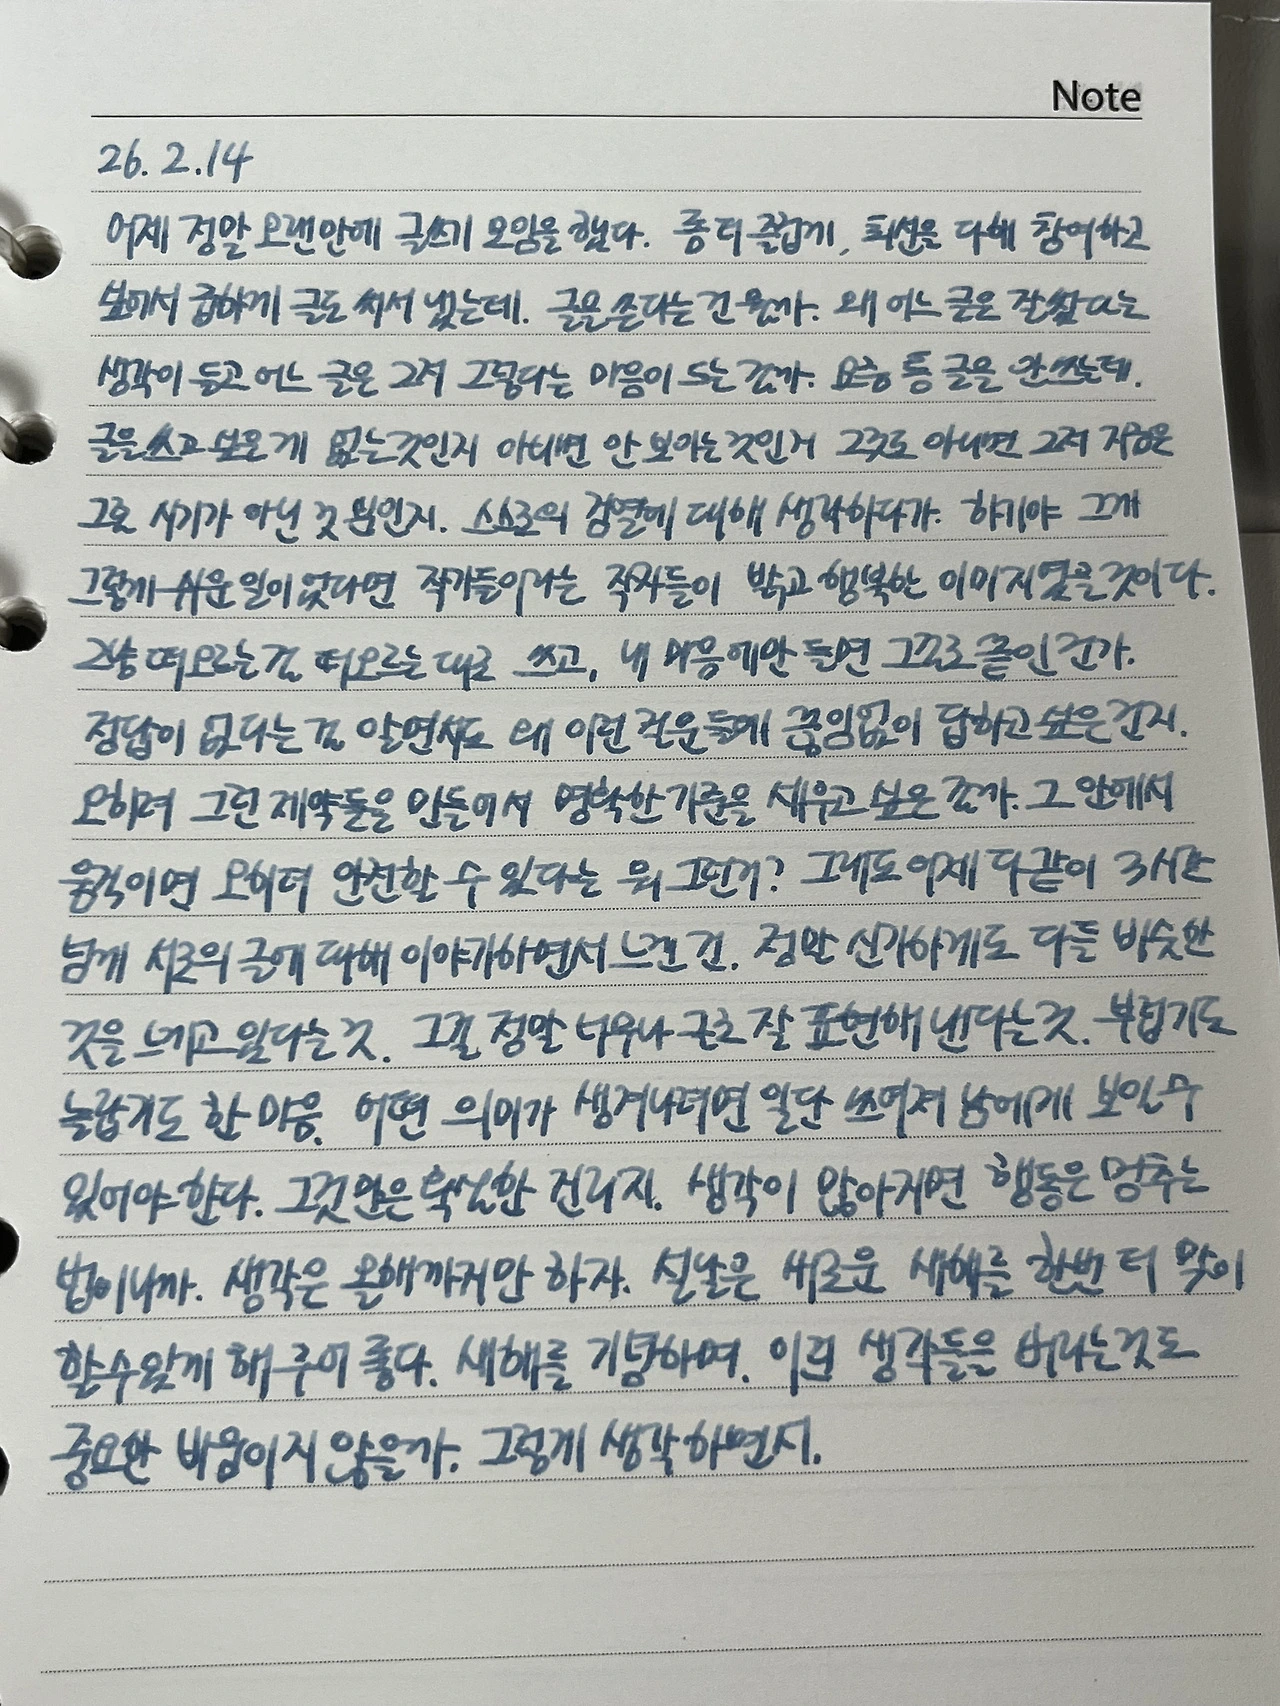 Note
26. 2. 14
어제 정말 오랜만에 글쓰기 모임을 했다. 좀 더 즐겁게, 최선을 다해 참여하고
싶어서 급하게 글도 써서 냈는데. 글을 쓴다는 건 뭘까. 왜 어느 글은 잘 썼다는
생각이 들고 어느 글은 그저 그렇다는 마음이 드는 걸까. 요즘 통 글을 안 쓰는데.
글을 쓰고 싶은 게 없는 것인지 아니면 안 보이는 것인지 그것도 아니면 그저 지금은
그럴 시기가 아닌 것 뿐인지. 스스로의 검열에 대해 생각하다가. 하기야 그게
그렇게 쉬운 일이었다면 작가들이라는 작자들이 밝고 행복한 이미지였을 것이다.
그냥 떠오르는 걸 떠오르는 대로 쓰고, 내 마음에만 들면 그걸로 끝인 건가.
정답이 없다는 걸 알면서도 왜 이런 질문들에 끊임없이 답하고 싶은 건지.
오히려 그런 제약들을 만들어서 명확한 기준을 세우고 싶은 걸까. 그 안에서
움직이면 오히려 안전할 수 있다는 뭐 그런거? 그래도 어제 다같이 3시간
넘게 서로의 글에 대해 이야기하면서 느낀 건. 정말 신기하게도 다들 비슷한
것을 느끼고 있다는 것. 그걸 정말 너무나 글로 잘 표현해 낸다는 것. 부럽기도
놀랍기도 한 마음. 어떤 의미가 생겨나려면 일단 쓰여져 남에게 보일 수
있어야 한다. 그것만은 확실한 진리지. 생각이 많아지면 행동은 멈추는
법이니까. 생각은 올해까지만 하자. 설날은 새로운 새해를 한번 더 맞이
할 수 있게 해 주어 좋다. 새해를 기념하며. 이런 생각들을 버리는 것도
중요한 비움이지 않을까. 그렇게 생각하면서.